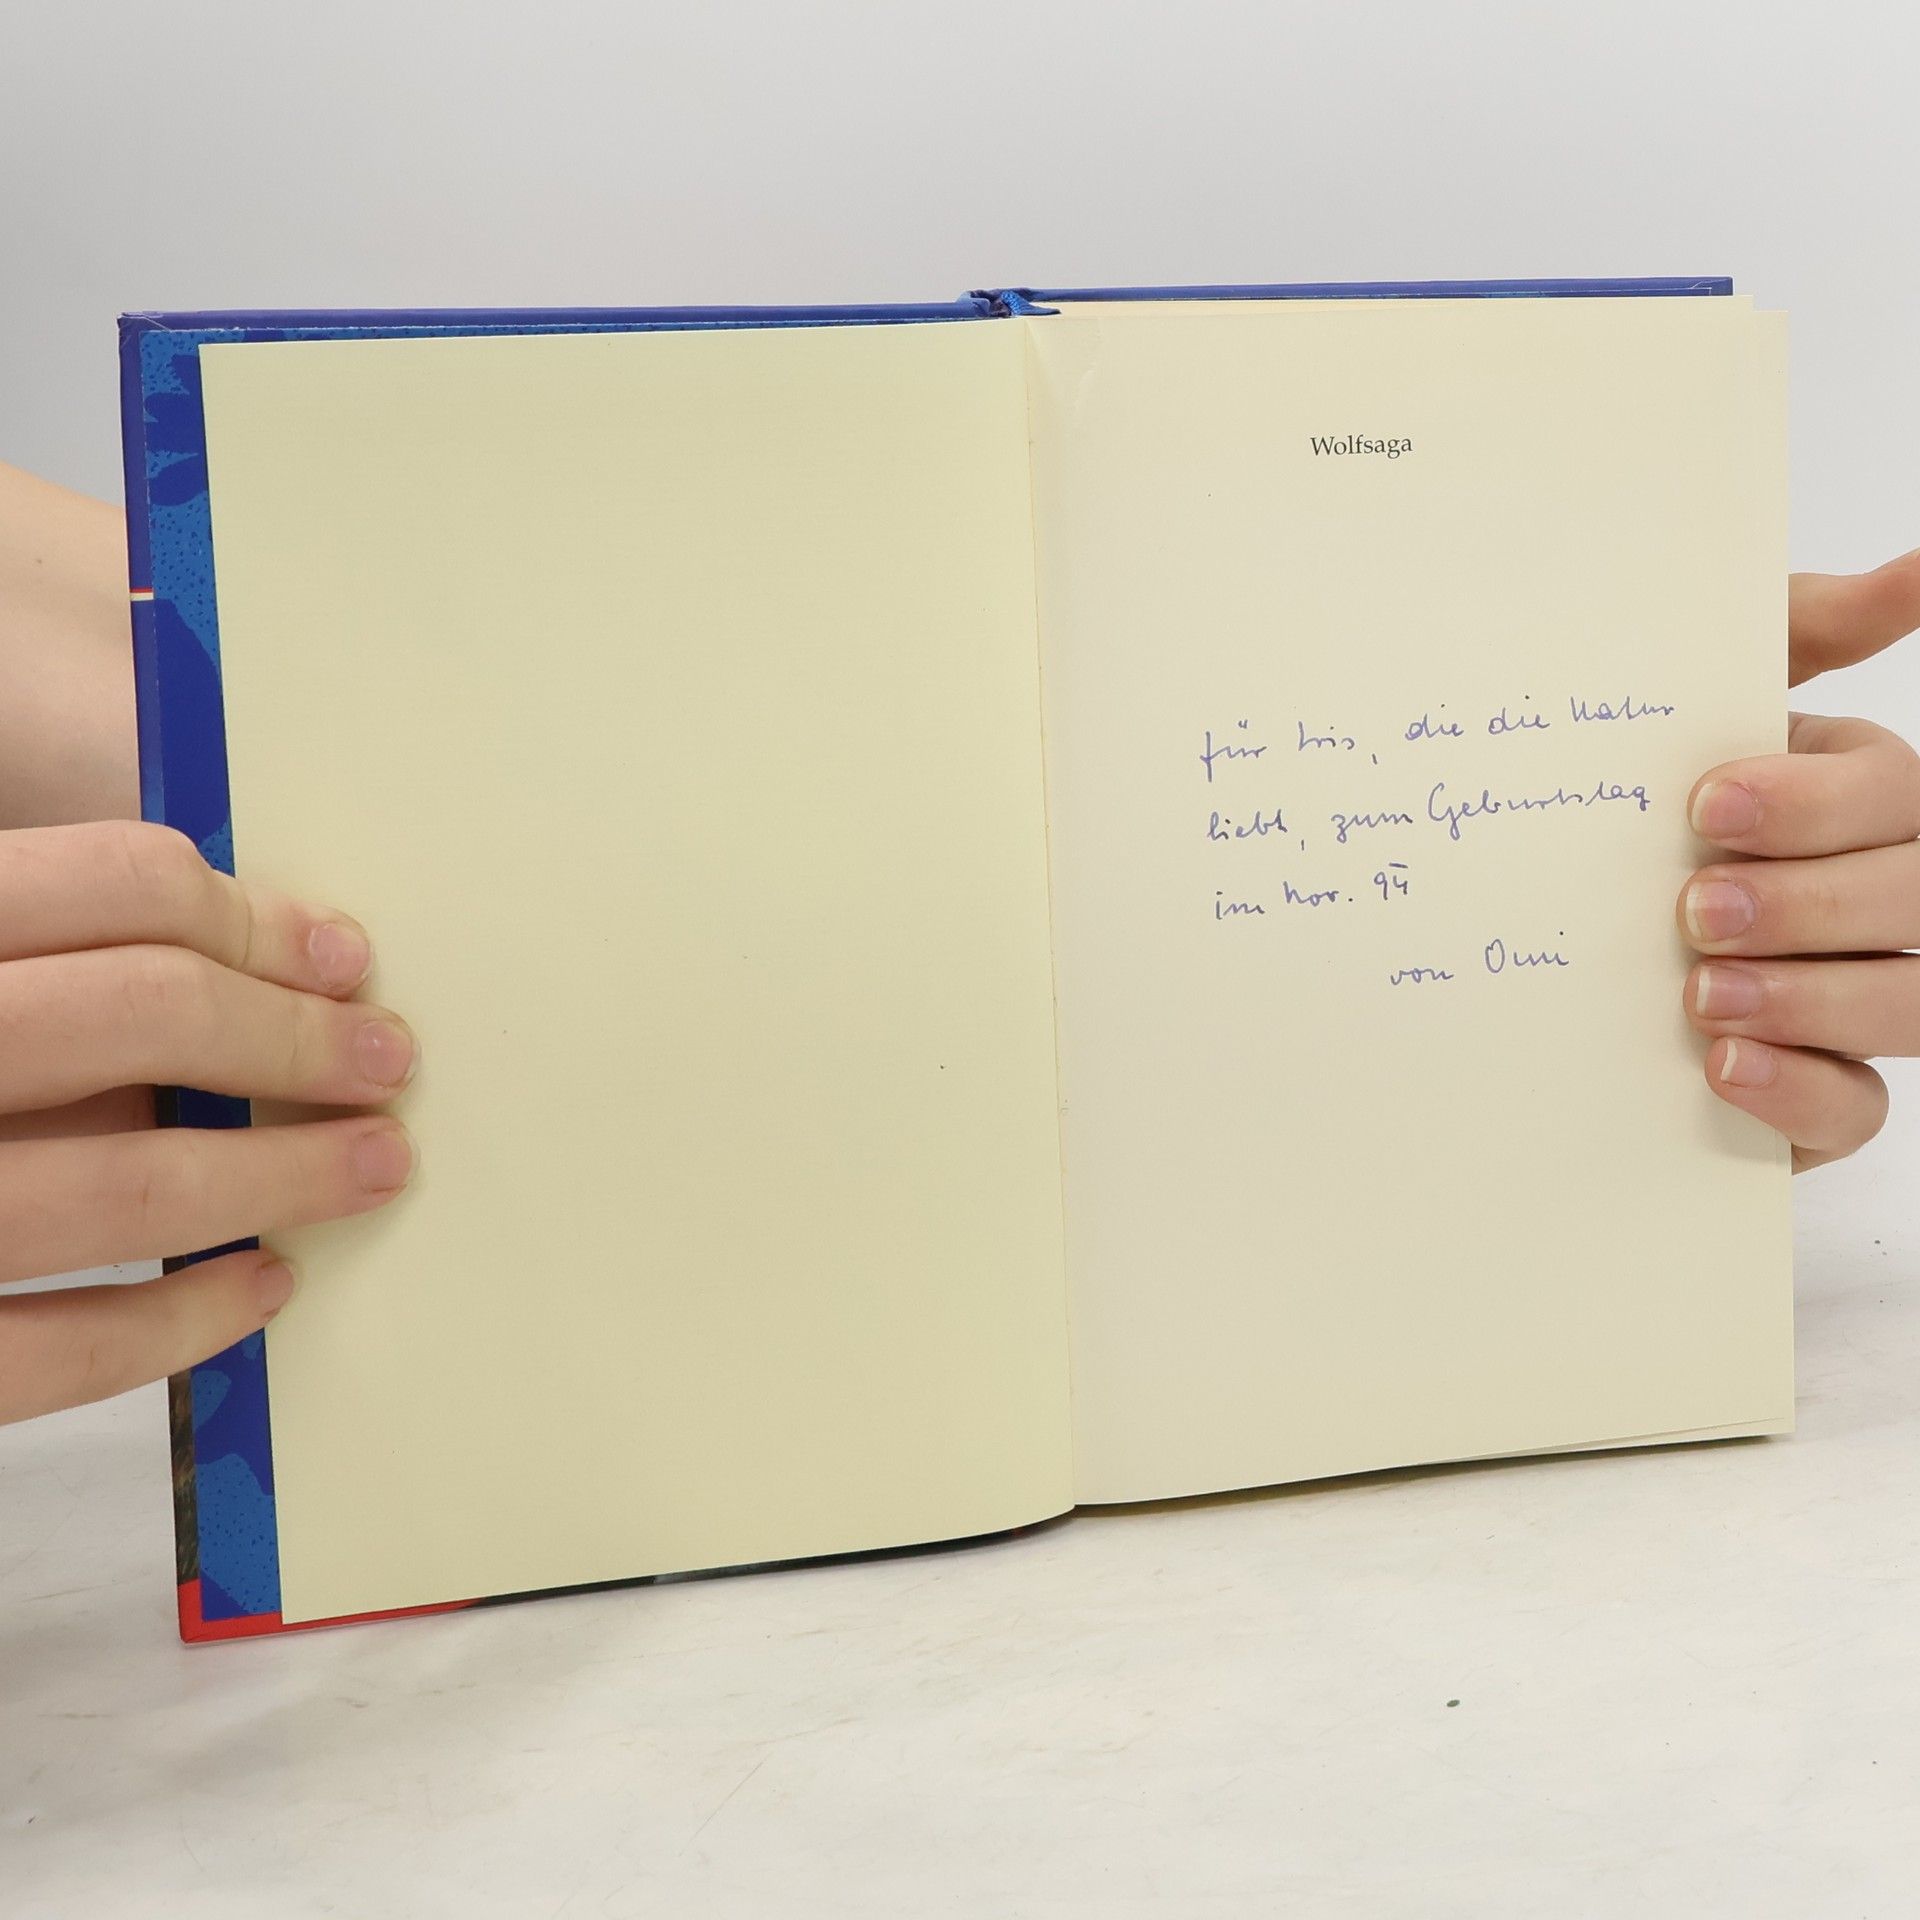 Wolfsaga
für Iris, die die Natur
liebt, zum Geburtstag
im Nov. 94
von Omi